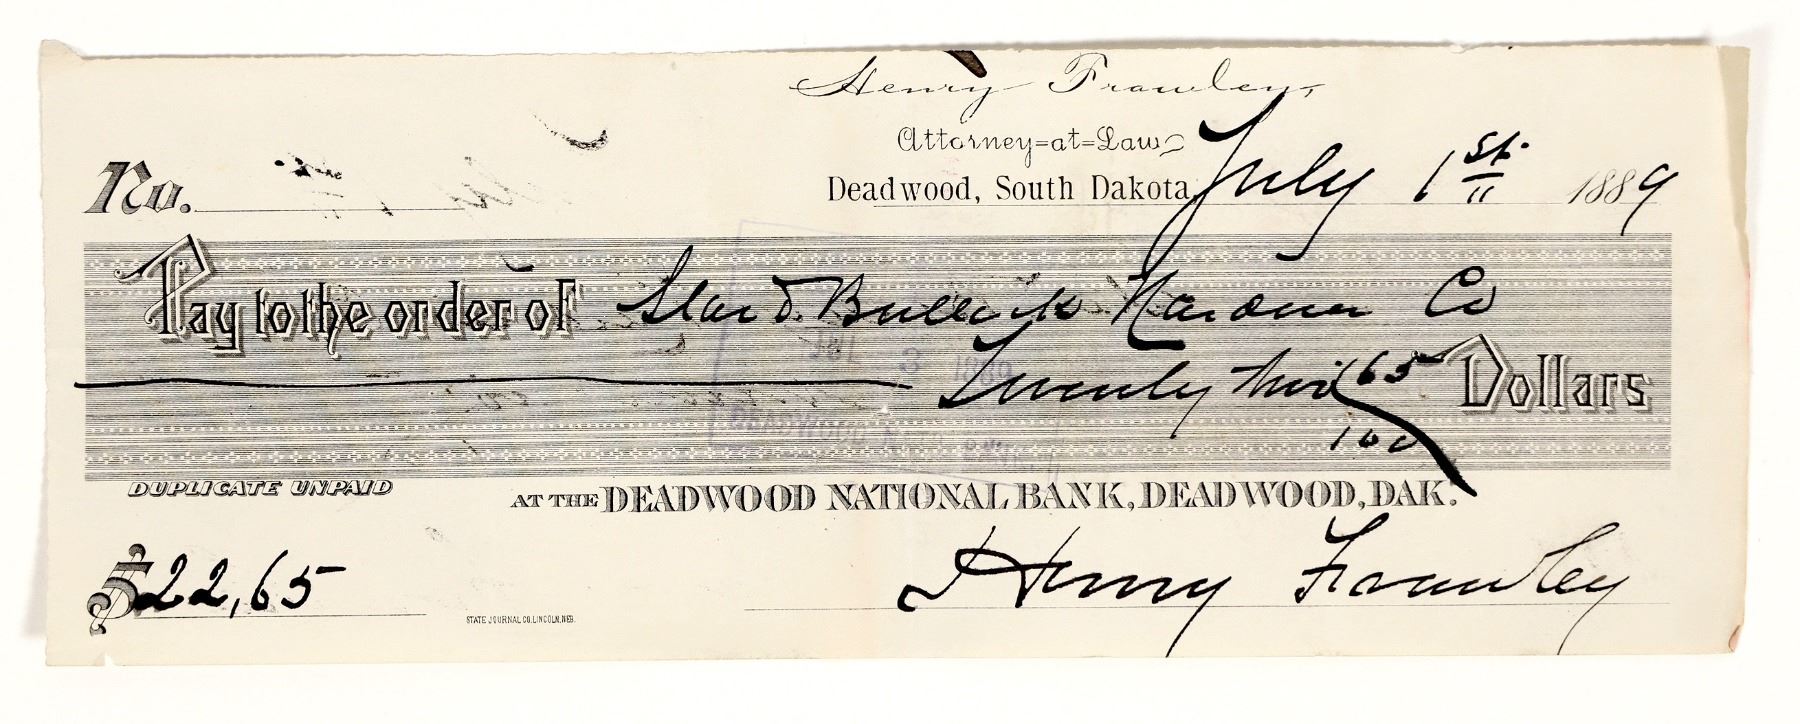 Henry Frawley,
Attorney=at=Law
Deadwood, South Dakota, July 1st 1889
No.
Pay to the order of Star & Bullock Hardware Co
Twenty two 65/100 Dollars
JUL 3 1889
DEADWOOD NAT'L BANK
DUPLICATE UNPAID
AT THE DEADWOOD NATIONAL BANK, DEADWOOD, DAK.
$22,65
Henry Frawley
STATE JOURNAL CO. LINCOLN, NEB.